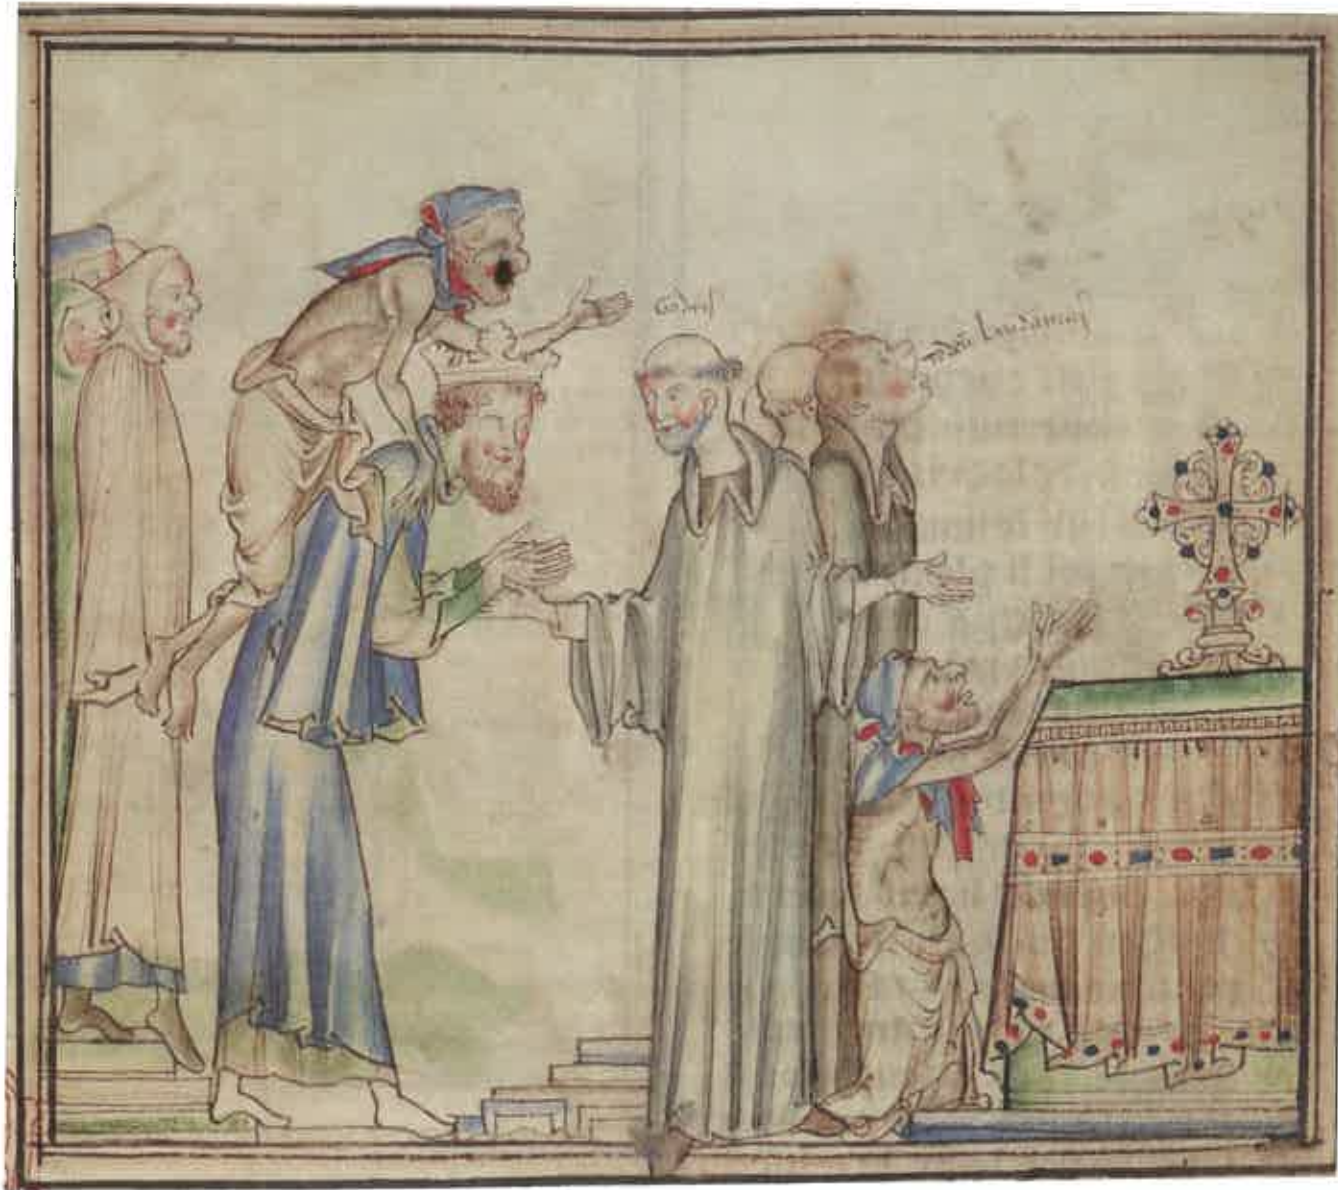 Godric
Te deū laudamus